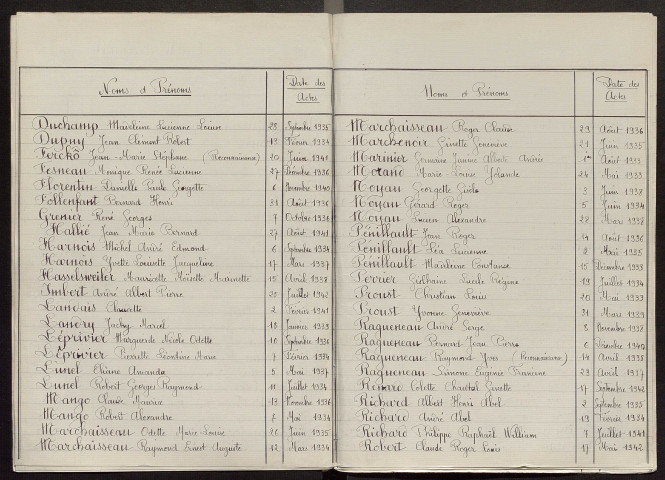 Noms et Prénoms Date des Actes
Duchamp Madeleine Lucienne Louise 28 Septembre 1935
Dupuy Jean Clément Robert 19 Février 1934
Ferchö Jean-Marie Stéphane (Reconnaissance) 20 Juin 1941
Fesneau Monique Renée Lucienne 27 Décembre 1936
Florentin Danielle Paule Georgette 6 Novembre 1940
Follenfant Bernard Henri 31 Août 1936
Grenier René Georges 7 Octobre 1931
Hallié Jean Marie Bernard 27 Août 1941
Harnois Michel André Edmond 6 Septembre 1934
Harnois Yvette Louisette Jacqueline 17 Mars 1937
Hasselsweiler Mauricette Marinette 15 Avril 1938
Imbert André Albert Pierre 20 Juillet 1942
Landais 2 Février 1941
Landry Jacky Marcel 18 Janvier 1933
Léprivier Marguerite Nicole Odette 10 Septembre 1936
Léprivier Pierrette Léontine Marie 7 Février 1934
Lunel Eliane Amanda 5 Mai 1937
Lunel Robert Georges Raymond 11 Juillet 1934
Mango Claude Maurice 13 Novembre 1936
Mango Robert Alexandre 7 Mai 1934
Marchaisseau Odette Marie-Louise 26 Juin 1935
Marchaisseau Raymond Ernest Auguste 12 Mai 1934
Noms et Prénoms Date des Actes
Marchaisseau Roger Claude 29 Août 1936
Marchenoir Ginette Geneviève 21 Juin 1935
Marinier Germaine Jeanne Alberte Andrée 1er Août 1933
Morand Marie Louise Yolande 24 Mai 1933
Noyau Georgette Gisèle 3 Juin 1938
Noyau Gérard Roger 5 Juin 1934
Noyau Lucien Alexandre 22 Mars 1932
Pénillault Jean Roger 14 Août 1936
Pénillault Léa Lucienne 2 Mai 1935
Pénillault Madeleine Constance 15 Décembre 1933
Perrier Guilhaine Lucile Régine 19 Juillet 1934
Proust Christian Louis 20 Mai 1933
Proust Yvonne Geneviève 31 Mars 1939
Ragueneau André Serge 8 Novembre 1938
Ragueneau Bernard Jean Pierre 6 Décembre 1940
Ragueneau Raymond Yves (Reconnaissance) 14 Avril 1938
Ragueneau Simone Eugénie Francine 29 Avril 1937
Renard Colette Chantal Ginette 17 Septembre 1942
Richard Albert Henri Abel 2 Septembre 1935
Richard André Abel 19 Février 1934
Richard Philippe Raphaël William 7 Juillet 1941
Robert Claude Roger Louis 17 Mai 1942